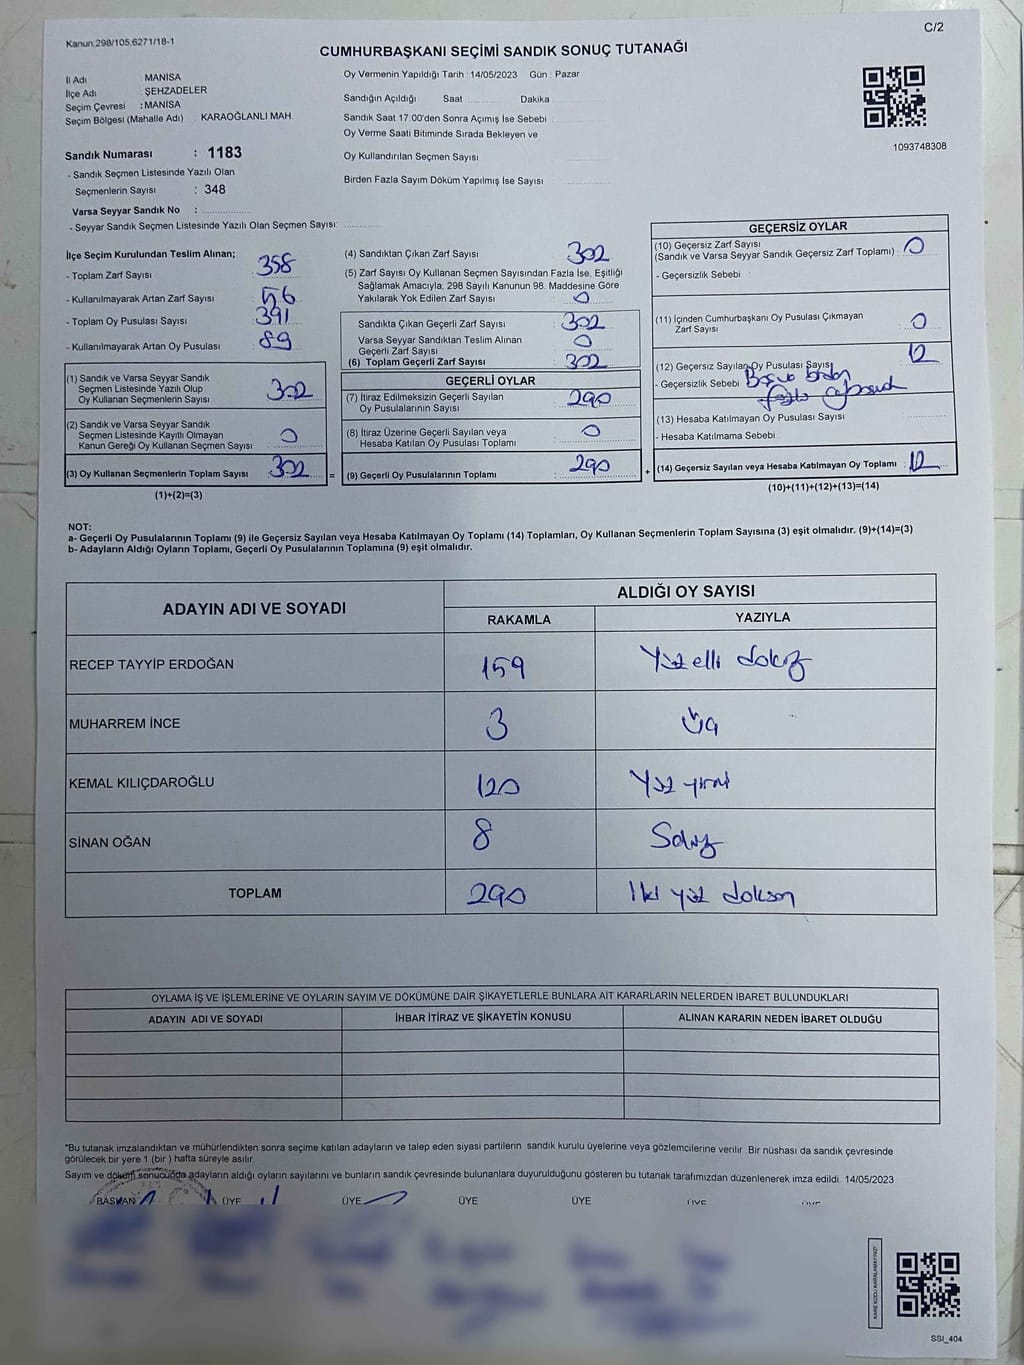 Kanun:298/105;6271/18-1
C/2
CUMHURBAŞKANI SEÇİMİ SANDIK SONUÇ TUTANAĞI
İl Adı MANİSA
İlçe Adı : ŞEHZADELER
Seçim Çevresi : MANİSA
Seçim Bölgesi (Mahalle Adı) KARAOĞLANLI MAH.
Sandık Numarası : 1183
- Sandık Seçmen Listesinde Yazılı Olan
Seçmenlerin Sayısı : 348
Varsa Seyyar Sandık No :
- Seyyar Sandık Seçmen Listesinde Yazılı Olan Seçmen Sayısı:
Oy Vermenin Yapıldığı Tarih : 14/05/2023 Gün : Pazar
Sandığın Açıldığı Saat Dakika
Sandık Saat 17:00'den Sonra Açımış İse Sebebi
Oy Verme Saati Bitiminde Sırada Bekleyen ve
Oy Kullandırılan Seçmen Sayısı
Birden Fazla Sayım Döküm Yapılmış İse Sayısı
1093748308
İlçe Seçim Kurulundan Teslim Alınan;
- Toplam Zarf Sayısı : 358
- Kullanılmayarak Artan Zarf Sayısı : 56
- Toplam Oy Pusulası Sayısı : 391
- Kullanılmayarak Artan Oy Pusulası : 89
(1) Sandık ve Varsa Seyyar Sandık
Seçmen Listesinde Yazılı Olup
Oy Kullanan Seçmenlerin Sayısı : 302
(2) Sandık ve Varsa Seyyar Sandık
Seçmen Listesinde Kayıtlı Olmayan
Kanun Gereği Oy Kullanan Seçmen Sayısı : 0
(3) Oy Kullanan Seçmenlerin Toplam Sayısı : 302
(1)+(2)=(3)
(4) Sandıktan Çıkan Zarf Sayısı : 302
(5) Zarf Sayısı Oy Kullanan Seçmen Sayısından Fazla İse, Eşitliği
Sağlamak Amacıyla; 298 Sayılı Kanunun 98. Maddesine Göre
Yakılarak Yok Edilen Zarf Sayısı : 0
Sandıkta Çıkan Geçerli Zarf Sayısı : 302
Varsa Seyyar Sandıktan Teslim Alınan
Geçerli Zarf Sayısı : 0
(6) Toplam Geçerli Zarf Sayısı : 302
GEÇERLİ OYLAR
(7) İtiraz Edilmeksizin Geçerli Sayılan
Oy Pusulalarının Sayısı : 290
(8) İtiraz Üzerine Geçerli Sayılan veya
Hesaba Katılan Oy Pusulası Toplamı : 0
= (9) Geçerli Oy Pusulalarının Toplamı : 290
GEÇERSİZ OYLAR
(10) Geçersiz Zarf Sayısı
(Sandık ve Varsa Seyyar Sandık Geçersiz Zarf Toplamı) : 0
- Geçersizlik Sebebi :
(11) İçinden Cumhurbaşkanı Oy Pusulası Çıkmayan
Zarf Sayısı : 0
(12) Geçersiz Sayılan Oy Pusulası Sayısı 12
- Geçersizlik Sebebi Boş ve birden
fazla
(13) Hesaba Katılmayan Oy Pusulası Sayısı
- Hesaba Katılmama Sebebi :
+ (14) Geçersiz Sayılan veya Hesaba Katılmayan Oy Toplamı : 12
(10)+(11)+(12)+(13)=(14)
NOT:
a- Geçerli Oy Pusulalarının Toplamı (9) ile Geçersiz Sayılan veya Hesaba Katılmayan Oy Toplamı (14) Toplamları, Oy Kullanan Seçmenlerin Toplam Sayısına (3) eşit olmalıdır. (9)+(14)=(3)
b- Adayların Aldığı Oyların Toplamı, Geçerli Oy Pusulalarının Toplamına (9) eşit olmalıdır.
ADAYIN ADI VE SOYADI ALDIĞI OY SAYISI
RAKAMLA YAZIYLA
RECEP TAYYİP ERDOĞAN 159 Yüz elli dokuz
MUHARREM İNCE 3 Üç
KEMAL KILIÇDAROĞLU 120 Yüz yirmi
SİNAN OĞAN 8 Sekiz
TOPLAM 290 İki yüz doksan
OYLAMA İŞ VE İŞLEMLERİNE VE OYLARIN SAYIM VE DÖKÜMÜNE DAİR ŞİKAYETLERLE BUNLARA AİT KARARLARIN NELERDEN İBARET BULUNDUKLARI
ADAYIN ADI VE SOYADI İHBAR İTİRAZ VE ŞİKAYETİN KONUSU ALINAN KARARIN NEDEN İBARET OLDUĞU
*Bu tutanak imzalandıktan ve mühürlendikten sonra seçime katılan adayların ve talep eden siyasi partilerin sandık kurulu üyelerine veya gözlemcilerine verilir .Bir nüshası da sandık çevresinde
görülecek bir yere 1 (bir ) hafta süreyle asılır.
Sayım ve döküm sonucunda adayların aldığı oyların sayılarını ve bunların sandık çevresinde bulunanlara duyurulduğunu gösteren bu tutanak tarafımızdan düzenlenerek imza edildi. 14/05/2023
BAŞKAN ÜYE ÜYE ÜYE ÜYE ÜYE ÜYE
KARE KODU KARALAMAYINIZ!
SSI_404